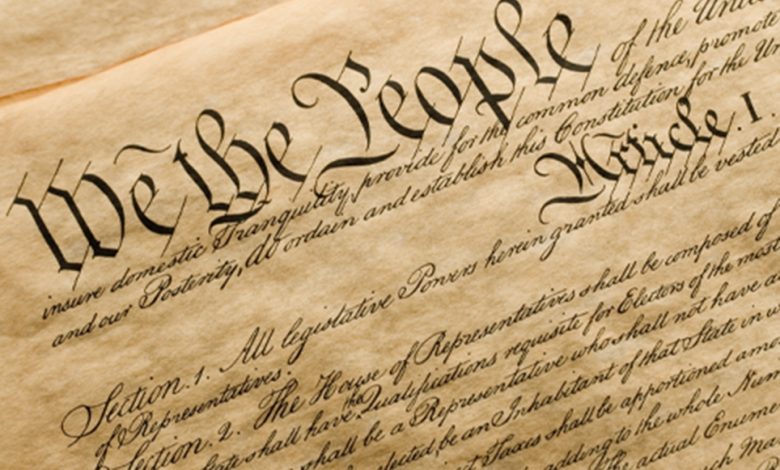 We the People of the United
insure domestic Tranquility, provide for the common defence, promote
and our Posterity, do ordain and establish this Constitution for the Un
Article. I.
Section. 1. All legislative Powers herein granted shall be vested
of Representatives.
Section. 2. The House of Representatives shall be composed of
State shall have the Qualifications requisite for Electors of the most
shall be a Representative who shall not have a
elected, be an Inhabitant of that State in w
Taxes shall be apportioned amo
adding to the whole Num
actual Enume
Ma